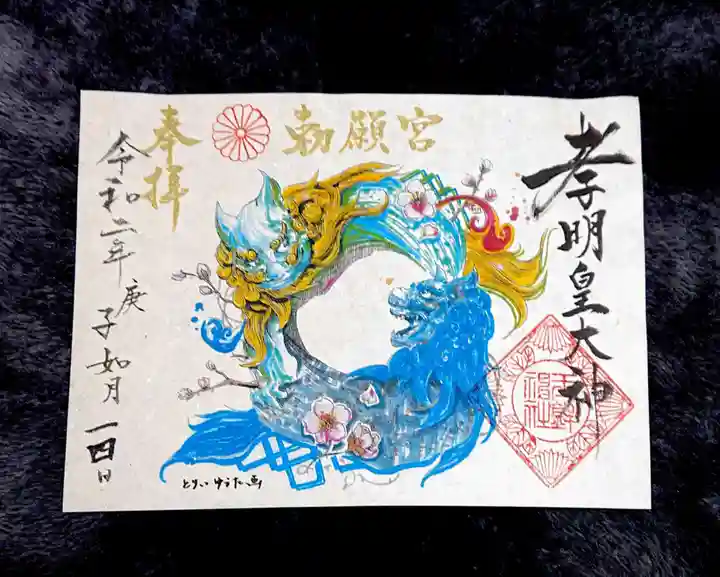 孝明皇大神
勅願宮
奉拝
令和二年庚子如月一四日
とりい ゆうた 画